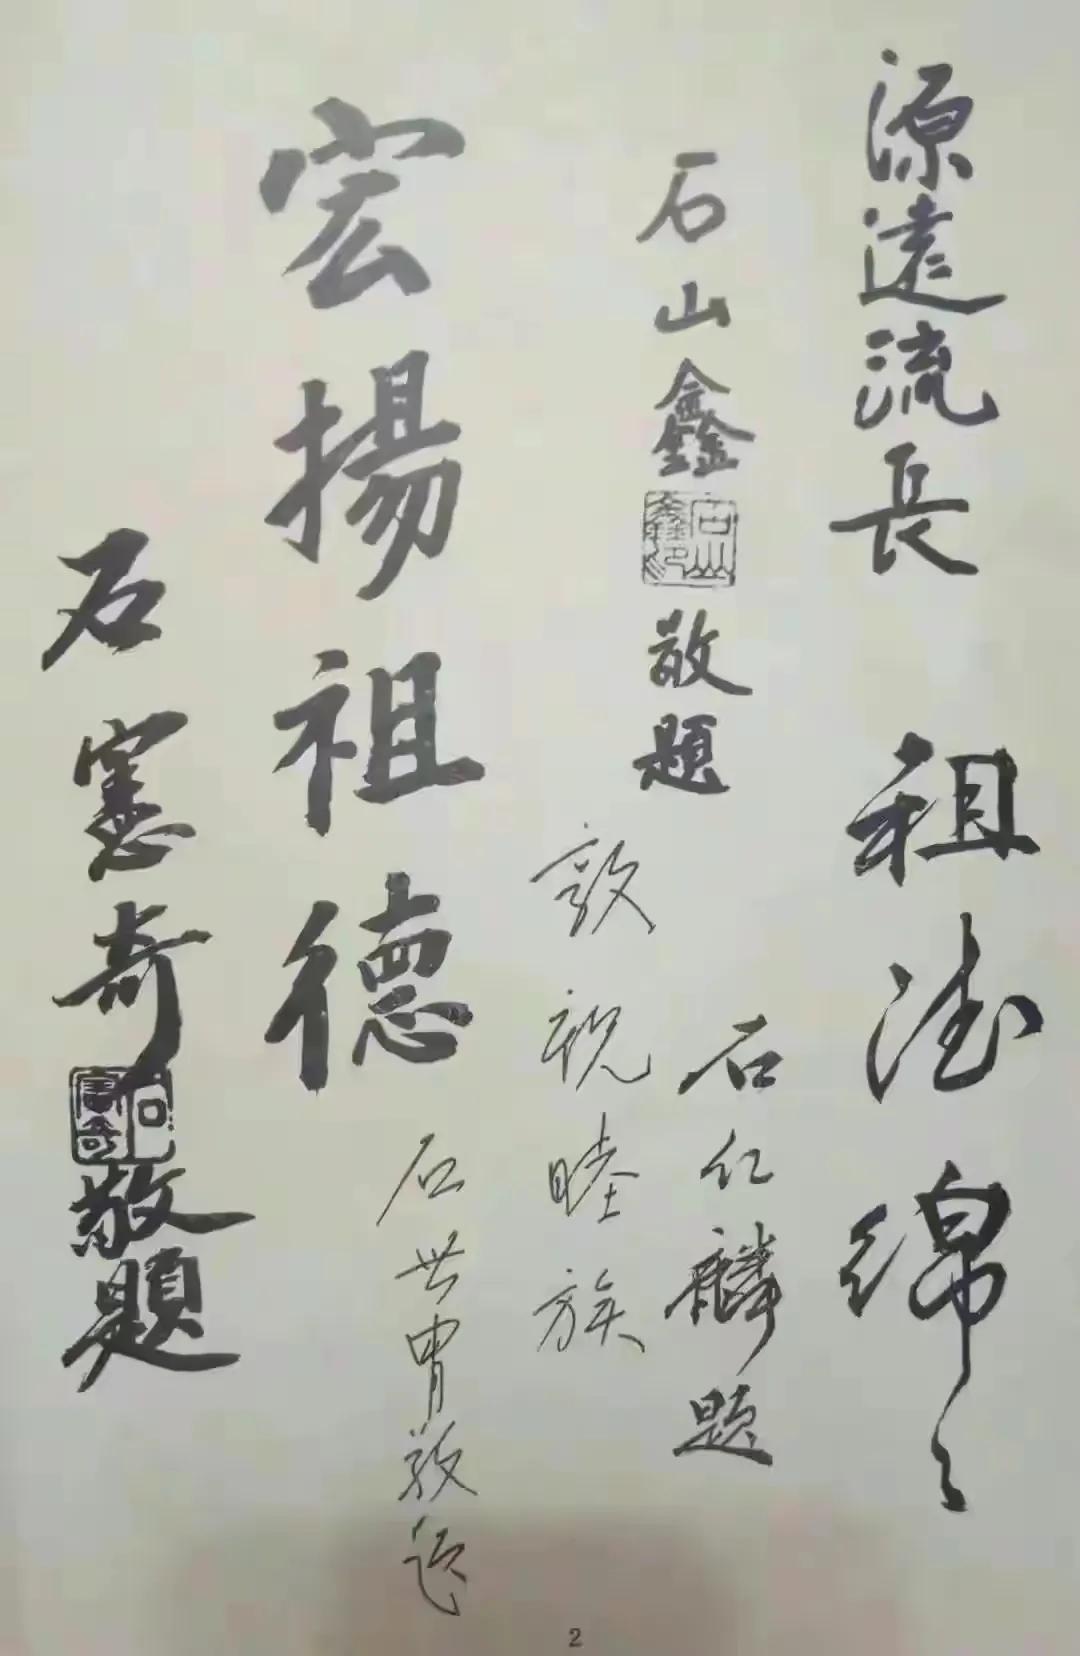 源遠流長
石山鑫
石山鑫印
敬題
祖德綿々
石仁麟題
敦親睦族
石世胄敬題
宏揚祖德
石憲奇
石憲奇
敬題
2